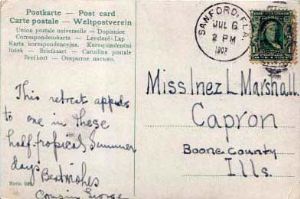 Postkarte - Post card
Carte postale - Weltpostverein
Union postale universelle - Dopisnice
Correspondenzkarte - Levelező-Lap
Korrespondenzkort
Brefkort - Cartolina postale
SANFORD, FLA.
JUL 6
2 PM
1907
Miss Inez L Marshall.
Capron
Boone County
Ills.
This retreat appeals
to one in these
half-tropical Summer
days Best wishes
Cousin George